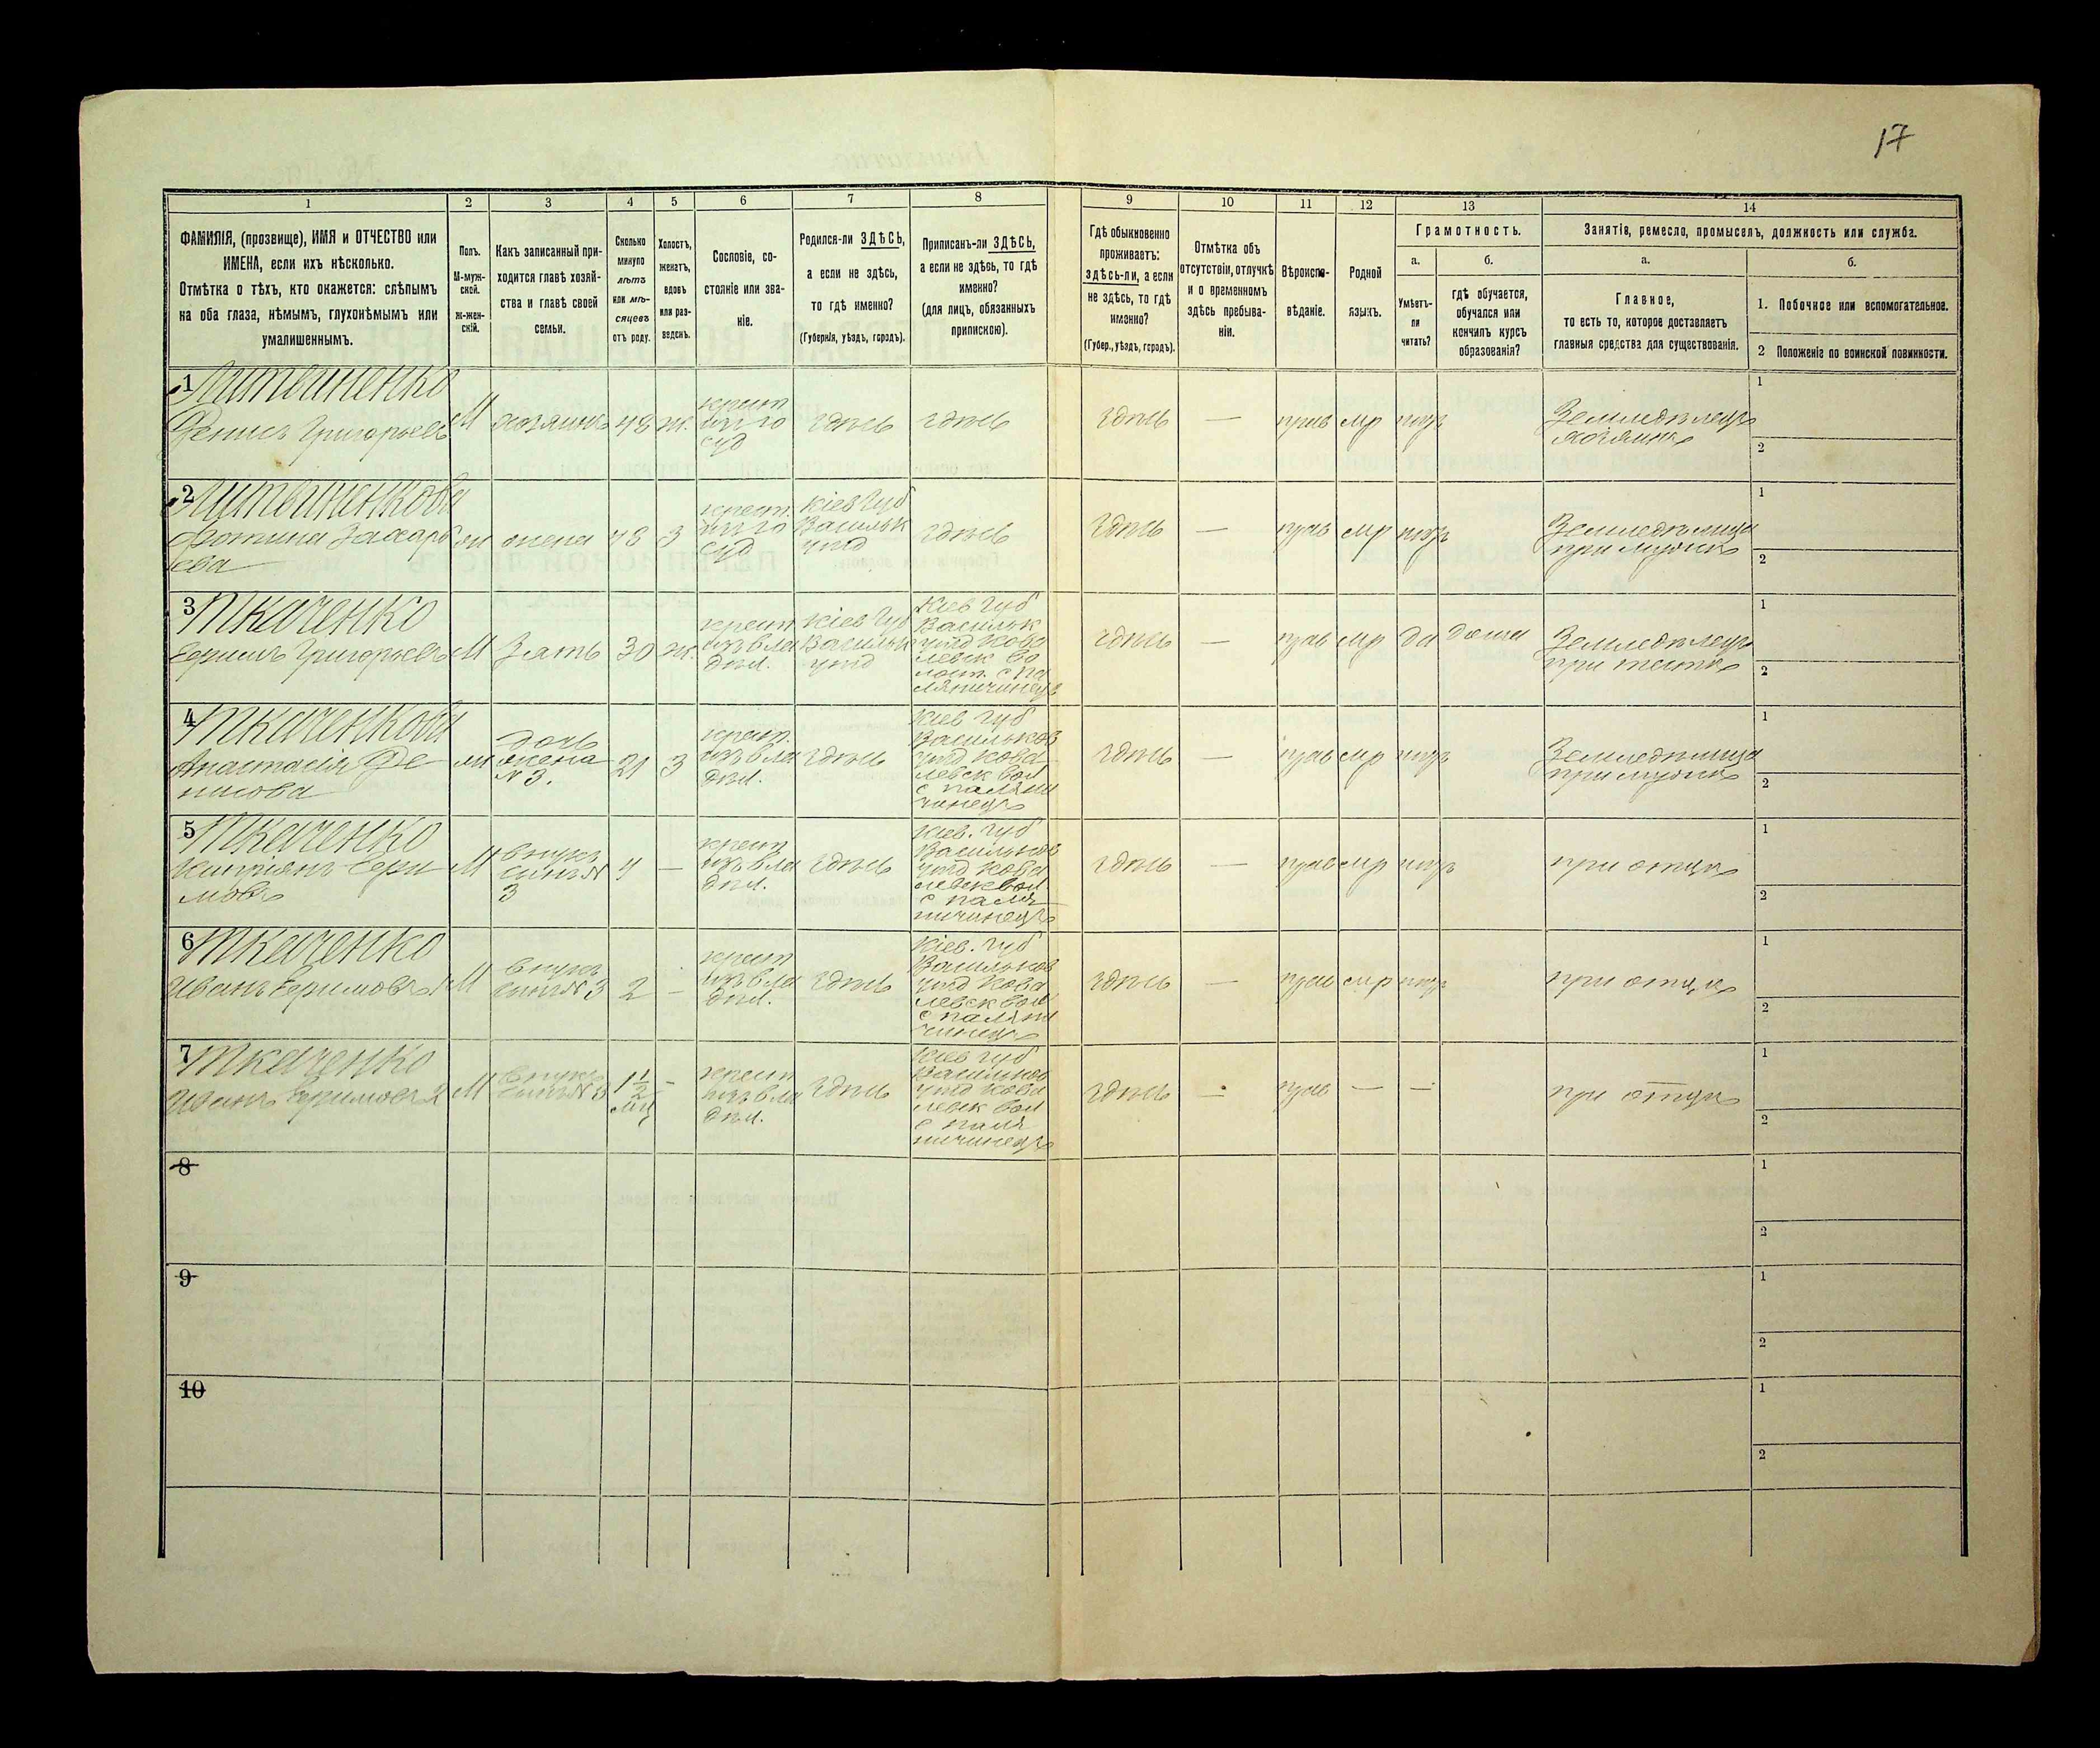 17
1
2
3
4
5
6
7
8
9
10
11
12
13
14
ФАМИЛІЯ, (прозвище), ИМЯ и ОТЧЕСТВО или
ИМЕНА, если ихъ нѣсколько.
Отмѣтка о тѣхъ, кто окажется: слѣпымъ
на оба глаза, нѣмымъ, глухонѣмымъ или
умалишеннымъ.
Полъ.
М-муж-
ской.
Ж-жен-
скій.
Какъ записанный при-
ходится главѣ хозяй-
ства и главѣ своей
семьи.
Сколько
минуло
лѣтъ
или мѣ-
сяцевъ
отъ роду.
Холостъ,
женатъ,
вдовъ
или раз-
веденъ.
Сословіе, со-
стояніе или зва-
ніе.
Родился-ли ЗДѢСЬ,
а если не здѣсь,
то гдѣ именно?
(Губернія, уѣздъ, городъ).
Приписанъ-ли ЗДѢСЬ,
а если не здѣсь, то гдѣ
именно?
(для лицъ, обязанныхъ
припискою).
Гдѣ обыкновенно
проживаетъ:
здѣсь-ли, а если
не здѣсь, то гдѣ
именно?
(Губер., уѣздъ, городъ).
Отмѣтка объ
отсутствіи, отлучкѣ
и о временномъ
здѣсь пребыва-
ніи.
Вѣроиспо-
вѣданіе.
Родной
языкъ.
Грамотность.
а.
Умѣетъ-
ли
читать?
б.
гдѣ обучается,
обучался или
кончилъ курсъ
образованія?
Занятіе, ремесло, промыселъ, должность или служба.
а.
Главное,
то есть то, которое доставляетъ
главныя средства для существованія.
б.
1. Побочное или вспомогательное.
2 Положеніе по воинской повинности.
1
Литвиненко
Денисъ Григорьевъ
М
хозяинъ
48
ж.
крест
суд
здѣсь
здѣсь
здѣсь
—
прав
мр
Земледѣлецъ
хозяинъ
1
2
2
Литвиненкова
Захарь
ева
жена
48
З
крест.
суд
Кіев Губ
Васильк
уѣзд
здѣсь
здѣсь
—
прав
мр
Земледѣлица
при мужѣ
1
2
3
Ткаченко
Ефимъ Григорьевъ
М
Зять
30
ж.
крест
изъ вла
дѣл.
Кіев Губ
Васильк
уѣзд
Кіев Губ
Васильк
уѣзд Кова
левск во
лост. с Па
ляничинецъ
здѣсь
—
прав
мр
да
дома
Земледѣлецъ
при тестѣ
1
2
4
Ткаченкова
Анастасія Де
нисова
дочь
жена
№ 3.
21
З
крест
изъ вла
дѣл.
здѣсь
Кіев Губ
Васильков
уѣзд Кова
левск вол
с Паляни
чинецъ
здѣсь
—
прав
мр
Земледѣлица
при мужѣ
1
2
5
Ткаченко
Кипріянъ Ефи
мовъ
М
внукъ
сынъ №
3
4
—
крест
изъ вла
дѣл.
здѣсь
Кіев. Губ
Васильков
уѣзд Кова
левск вол
с Паля
ничинецъ
здѣсь
—
прав
мр
при отцѣ
1
2
6
Ткаченко
Иванъ Ефимовъ 1
М
внукъ
сынъ № 3
2
—
крест
изъ вла
дѣл.
здѣсь
Кіев. Губ
Васильков
уѣзд Кова
левск вол
с Паляни
чинецъ
здѣсь
—
прав
мр
при отцѣ
1
2
7
Ткаченко
Иванъ Ефимовъ 2
М
внукъ
сынъ № 3
1 1/2
мц
—
крест
изъ вла
дѣл.
здѣсь
Кіев Губ
Васильков
уѣзд Кова
левск вол
с Паля
ничинецъ
здѣсь
—
прав
—
—
при отцѣ
1
2
8
1
2
9
1
2
10
1
2